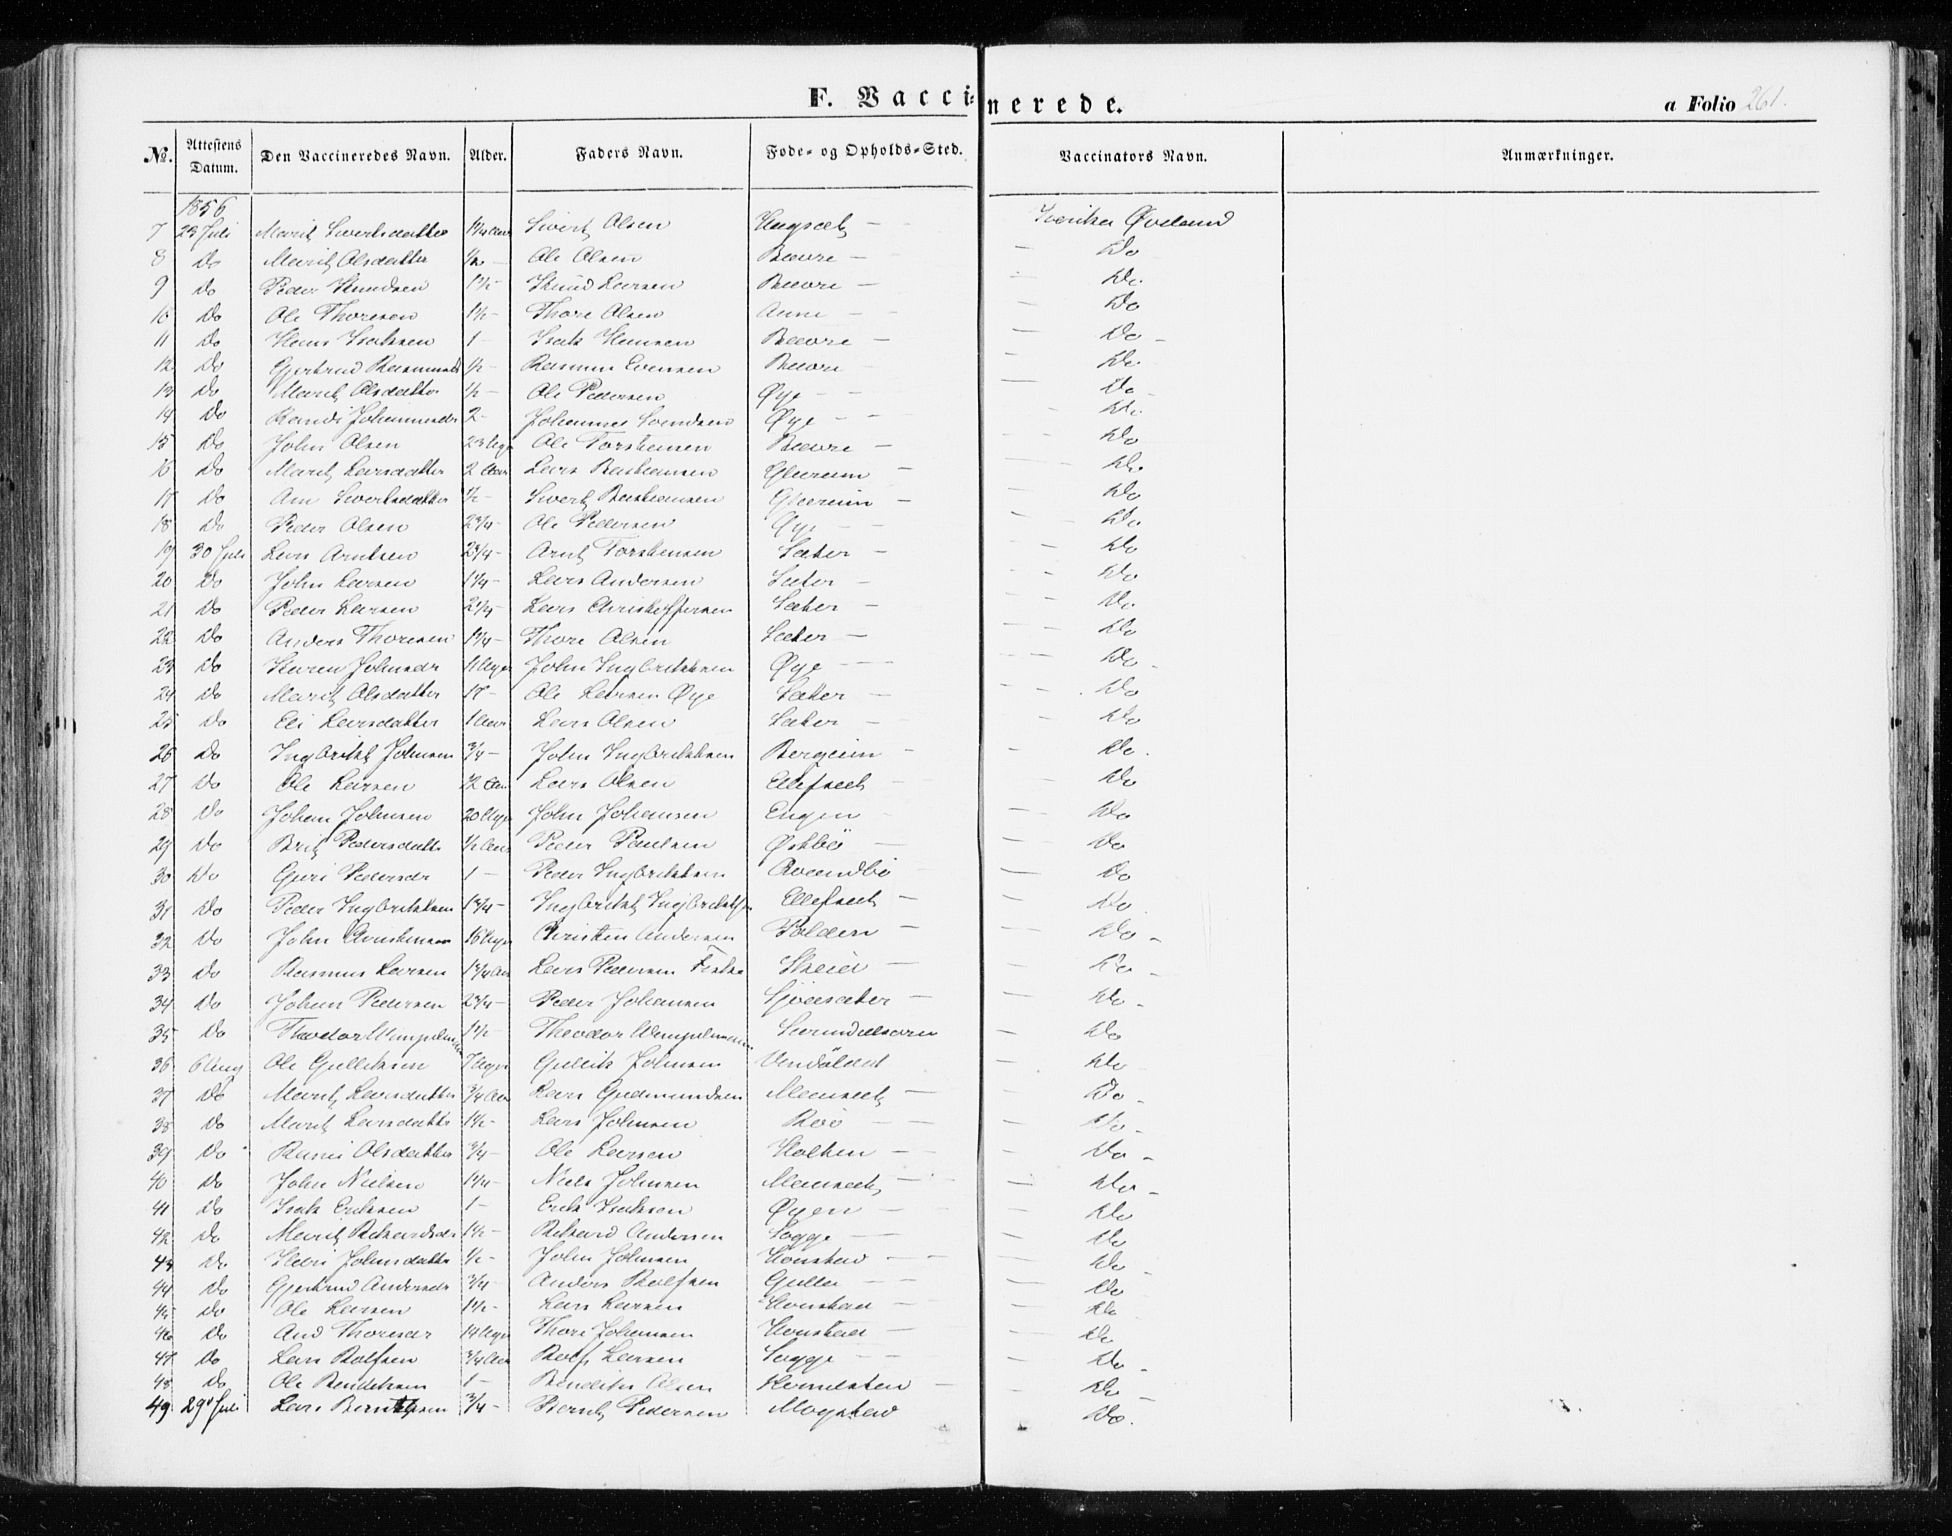 F. Vaccinerede.
a Folio 261.
No. Attestens Datum. Den Vaccineredes Navn. Alder. Faders Navn. Føde- og Opholds-Sted. Vaccinators Navn. Anmærkninger.
1856
7 23 Juli Marit Sivertsdatter 1 1/4 Aar Sivert Olsen — Øveland
8 Do Marit Olsdatter 1/2 — Ole Olsen Bævre — — Do
9 Do Peder Knudsen 1 1/2 — Knud Larsen Bævre — — Do
10 Do Ole Thoresen 1 1/2 — Thore Olsen — — Do
11 Do Hans Isaksen 1 — Isak Hansen Bævre — — Do
12 Do Gjertrud Rasmusd 1/2 — Rasmus Evensen Bævre — — Do
13 Do Marit Olsdatter 1/2 — Ole Pedersen Øye — — Do
14 Do Randi Johannesdr 2 — Johannes Svendsen Øye — — Do
15 Do John Olsen 23 Uger Ole Torstensen Bævre — — Do
16 Do Marit Larsdatter 2 Aar Lars Bastiansen Glærum — — Do
17 Do Ane Sivertsdatter 1/2 — Sivert Bastiansen Glærum — — Do
18 Do Peder Olsen 2 3/4 — Ole Pedersen Øye — — Do
19 30 Juli Lars Arntsen 2 3/4 — Arnt Torstensen Sæter — — Do
20 Do John Larsen 1 1/4 — Lars Andersen Sæter — — Do
21 Do Peder Larsen 2 1/4 — Lars Christoffersen Sæter — — Do
22 Do Anders Thoresen 1 1/4 — Thore Olsen Sæter — — Do
23 Do Karen Johnsdr 11 Uger John Ingbrigtsen Øye — — Do
24 Do Marit Olsdatter 18 — Ole Larsen Øye Sæter — — Do
25 Do Eli Larsdatter 1 Aar Lars Olsen Sæter — — Do
26 Do Ingbrikt Johnsen 3/4 — John Ingbriktsen Bergeim — Do
27 Do Ole Larsen 1/2 Aar Lars Olsen Ellefsæt — — Do
28 Do Johan Johnsen 20 Uger John Johansen Engen — — Do
29 Do Brit Pedersdatter 1/2 Aar Peder Paulsen Østbø — — Do
30 Do Guri Pedersdr 1 — Peder Ingbriktsen — Do
31 Do Peder Ingbriktsen 1 3/4 — Ingbrikt Ingbriktsen Ellefsæt — — Do
32 Do John Christensen 16 Uger Christen Andersen — — Do
33 Do Rasmus Larsen 1 3/4 Aar Lars Pedersen — — Do
34 Do Johan Pedersen 2 3/4 — Peder Johansen Sjøasæter — — Do
35 Do Theodor 1 1/2 — Theodor Surendalsøren — Do
36 6 Aug Ole Gulliksen 7 Uger Gullik Johnsen — Do
37 Do Marit Larsdatter 3/4 Aar Lars Gudmundsen Mauset — — Do
38 Do Marit Larsdatter 1 1/2 — Lars Johnsen — — Do
39 Do Olsdatter 3/4 — Ole Larsen Holten — — Do
40 Do John Nielsen 1 1/4 — Niels Johnsen Mauset — — Do
41 Do Isak Eriksen 1 — Erik Isaksen Øyen — — Do
42 Do Marit Rikardsdr 1 1/2 — Rikard Andersen Sogge — — Do
43 Do Kari Johnsdatter 1/2 — John Johnsen Honstad — — Do
44 Do Gjertrud Andersdr 3/4 — Anders Rolfsen Gulla — — Do
45 Do Ole Larsen 1 1/2 — Lars Larsen Honstad — — Do
46 Do Thoresdr 14 Uger Thore Johansen Honstad — — Do
47 Do Lars Rolfsen 3/4 Aar Rolf Larsen Sogge — — Do
48 Do Ole Bendiksen 1 — Bendik Olsen — — Do
49 29 Juli Lars Berntsen 3/4 — Bernt Pedersen Mogstad — Do.